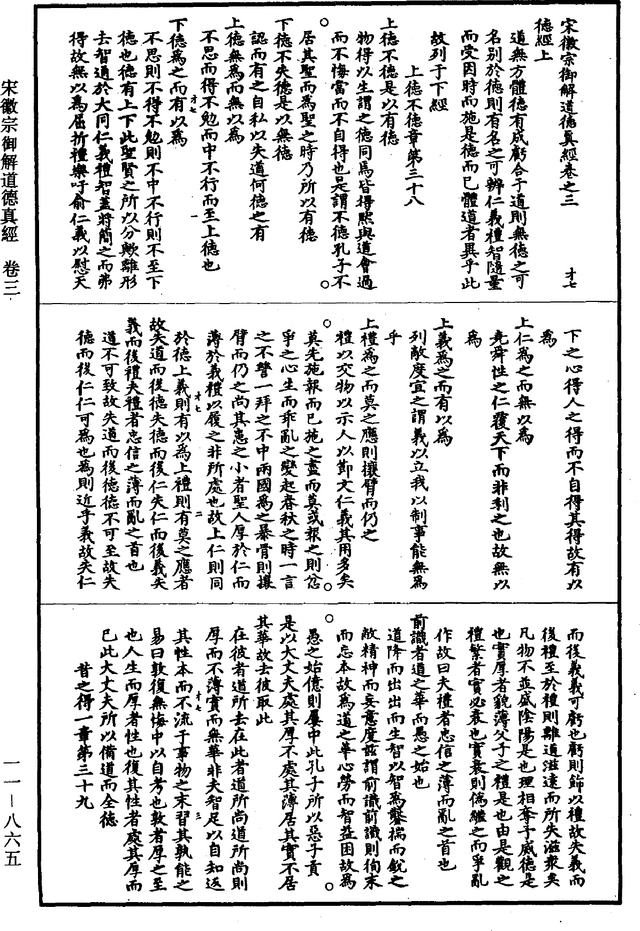 宋徽宗御解道德真經卷之三　才七
德經上
道無方體德有成虧合于道則無德之可
名別於德則有名之可辨仁義禮智隨量
而受因時而施是德而已體道者異乎此
故列于下經
上德不德章第三十八
上德不德是以有德
物得以生謂之德同焉皆得默與道會過
而不悔當而不自得也是謂不德孔子不
居其聖而為聖之時乃所以有德
下德不失德是以無德
認而有之自私以失道何德之有
上德無為而無以為
不思而得不勉而中不行而至上德也
下德為之而有以為
不思則不得不勉則不中不行則不至下
德也德有上下此聖賢之所以分歟離形
去智通於大同仁義禮智蓋將簡之而弗
得故無以為屈折禮樂吁俞仁義以慰天
才七　一
下之心得人之得而不自得其得故有以
為
上仁為之而無以為
堯舜性之仁覆天下而非利之也故無以
為
上義為之而有以為
列敵度宜之謂義以立我以制事能無為
乎
上禮為之而莫之應則攘臂而仍之
禮以交物以示人以節文仁義其用多矣
莫先施報而已施之盡而莫或報之則忿
爭之心生而乖亂之變起春秋之時一言
之不讐一拜之不中兩國為之暴骨則攘
臂而仍之尚其患之小者聖人厚於仁而
薄於義禮以履之非所處也故上仁則同
於德上義則有以為上禮則有莫之應者
故失道而後德失德而後仁失仁而後義失
義而後禮夫禮者忠信之薄而亂之首也
道不可致故失道而後德德不可至故失
德而後仁仁可為也為則近乎義故失仁
才七　二
而後義義可虧也虧則飾以禮故失義而
後禮至於禮則離道滋遠而所失滋衆矣
凡物不並盛陰陽是也理相奪予威德是
也實厚者貌薄父子之禮是也由是觀之
禮繁者實必衰也實衰則偽繼之而爭亂
作故曰夫禮者忠信之薄而亂之首也
前識者道之華而愚之始也
道降而出出而生智以智為鑿揣而銳之
敝精神而妄意度茲謂前識前識則徇末
而忘本故為道之華心勞而智益困故為
愚之始億則屢中此孔子所以惡子貢
是以大丈夫處其厚不處其薄居其實不居
其華故去彼取此
在彼者道所去在此者道所尚道所尚則
厚而不薄實而無華非夫智足以自知返
其性本而不流于事物之末習其孰能之
易曰敦復無悔中以自考也敦者厚之至
也人生而厚者性也復其性者處其厚而
已此大丈夫所以備道而全德
昔之得一章第三十九
才七　三
宋徽宗御解道德真經　卷三
一一—八六五